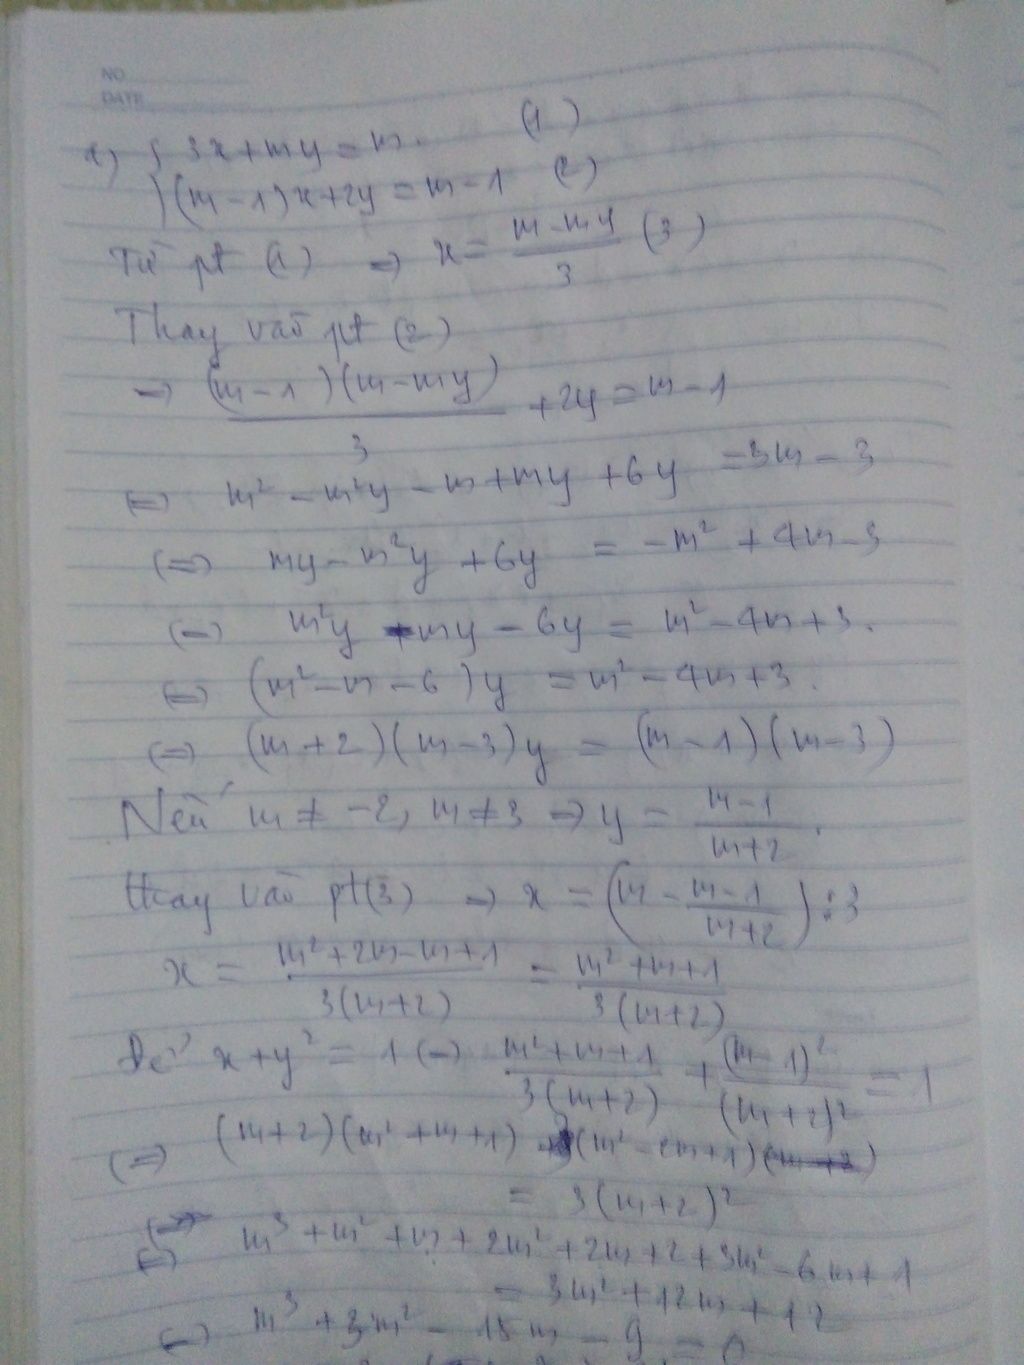 NO
DATE
1) { 3x + my = m. (1)
(m - 1)x + 2y = m - 1 (2)
Từ pt (1) => x = (m - my)/3 (3)
Thay vào pt (2)
=> (m - 1)(m - my)/3 + 2y = m - 1
<=> m² - m²y - m + my + 6y = 3m - 3
<=> my - m²y + 6y = -m² + 4m - 3
<=> m²y - my - 6y = m² - 4m + 3.
<=> (m² - m - 6)y = m² - 4m + 3.
<=> (m + 2)(m - 3)y = (m - 1)(m - 3)
Nếu m ≠ -2, m ≠ 3 => y = (m - 1)/(m + 2).
thay vào pt(3) => x = (m - (m - 1)/(m + 2)) : 3
x = (m² + 2m - m + 1)/(3(m + 2)) = (m² + m + 1)/(3(m + 2))
Để x + y² = 1 <=> (m² + m + 1)/(3(m + 2)) + (m - 1)²/(m + 2)² = 1
<=> (m + 2)(m² + m + 1) + 3(m² - 2m + 1)
= 3(m + 2)²
<=> m³ + m² + m + 2m² + 2m + 2 + 3m² - 6m + 1
= 3m² + 12m + 12
<=> m³ + 3m² - 15m - 9 = 0